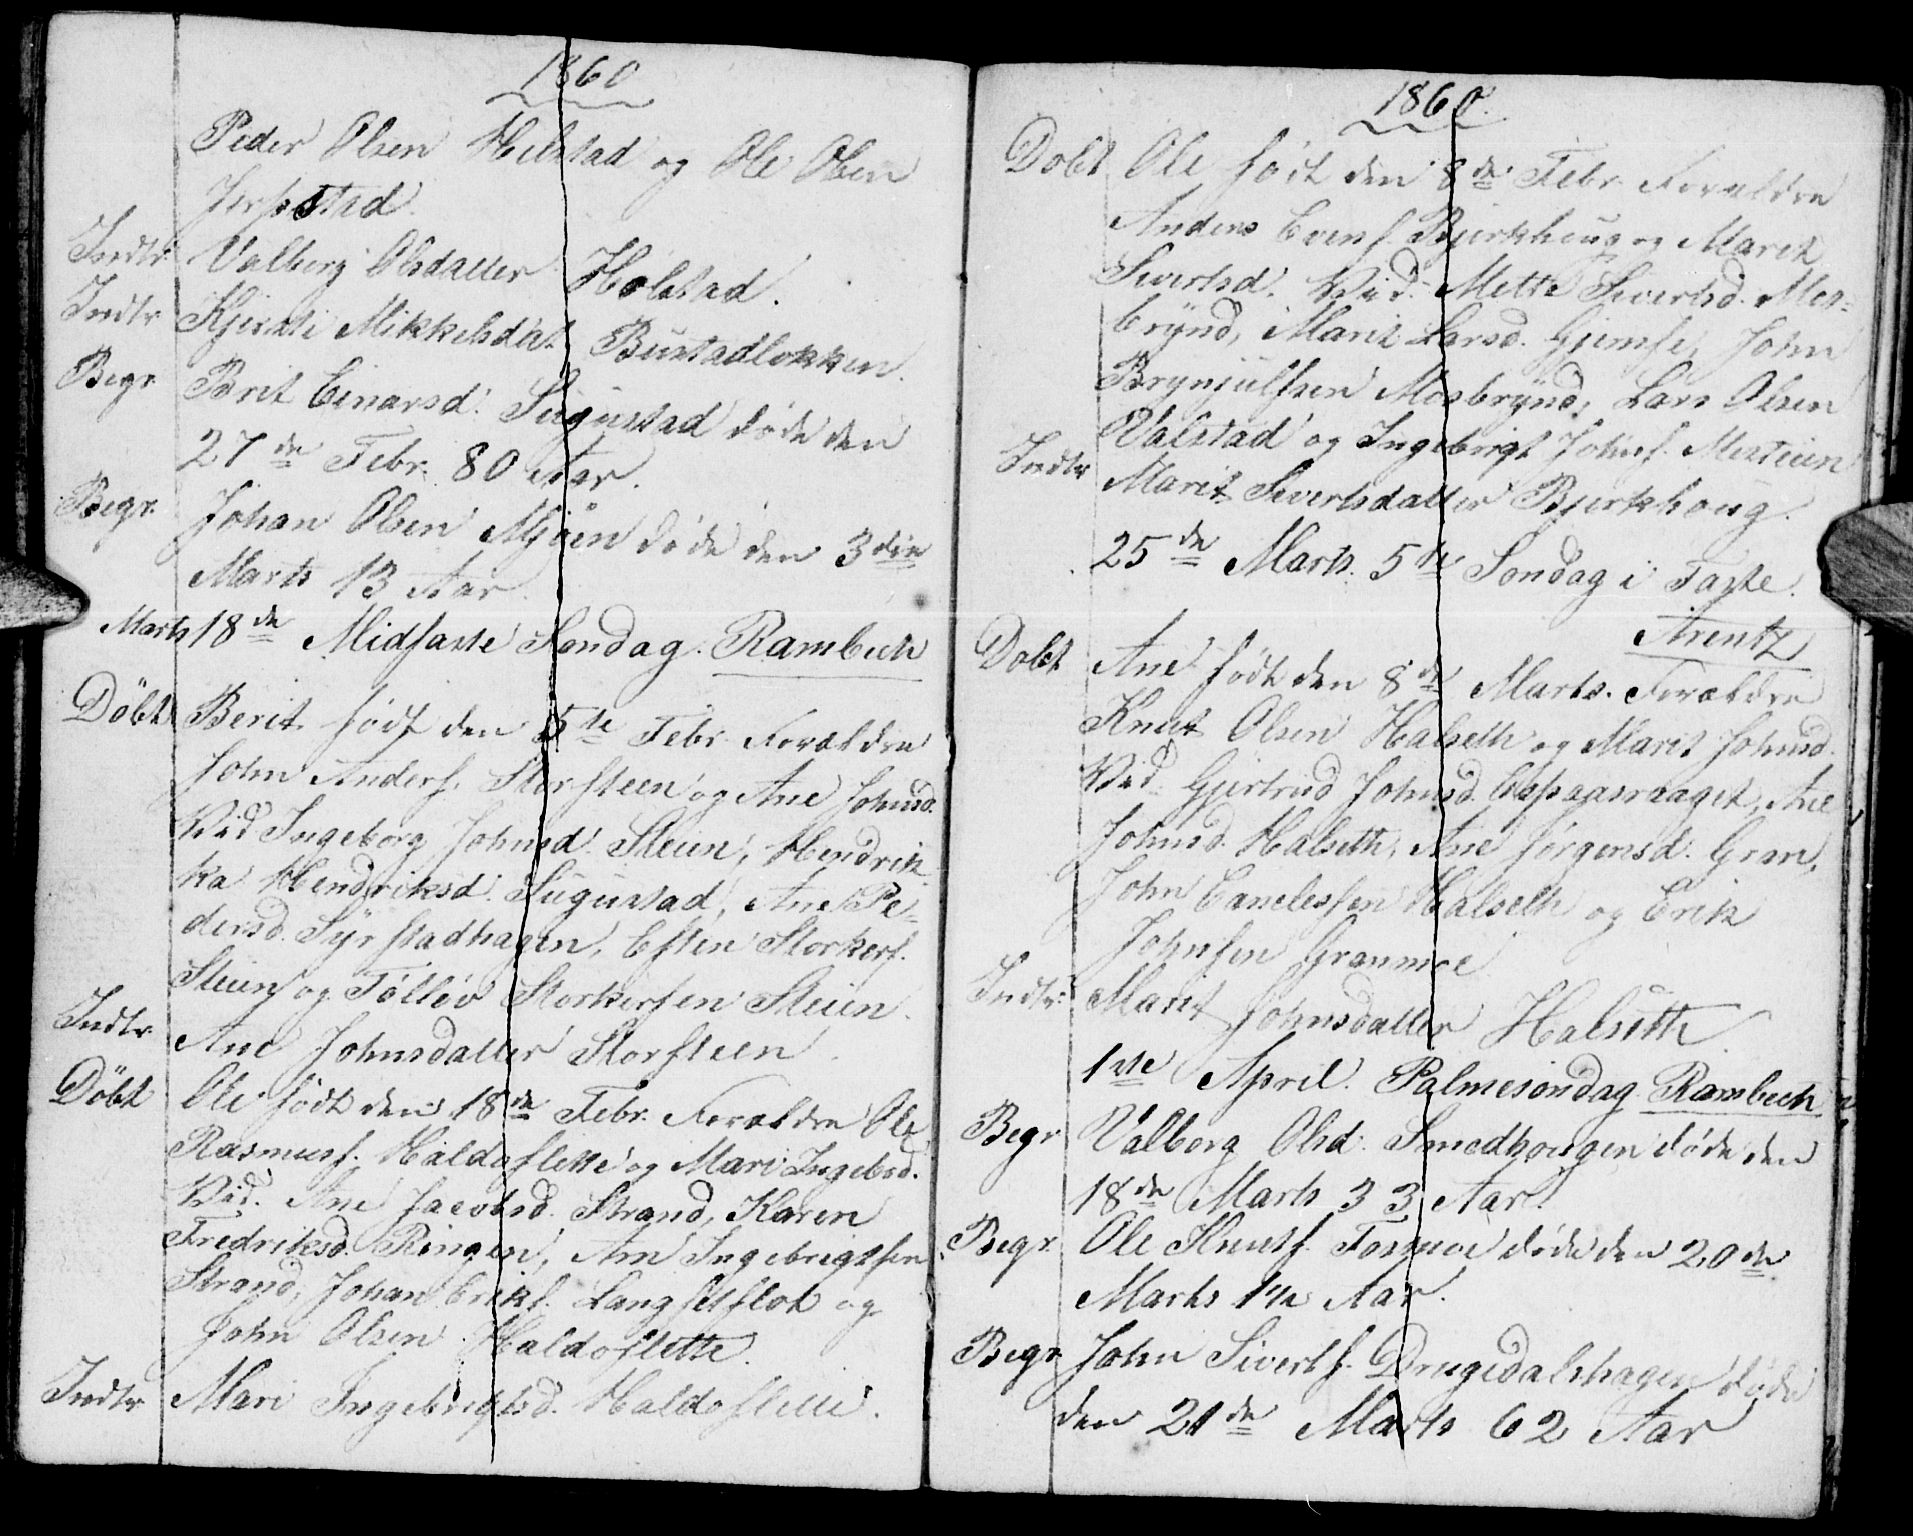 1860
Peder Olsen Helstad og Ole Olsen
Jerpstad.
Indtr. Valborg Olsdatter Holstad.
Indtr. Kjersti Mikkelsdat. Bustadløkken.
Begr. Brit Einarsd. Sugustad døde den
27de Febr. 80 Aar.
Begr. Johan Olsen Mjøen døde den 3die
Marts 13 Aar.
Marts 18de Midfaste Søndag. Rambech
Döbt Berit født den 5te Febr. Forældre
John Andersf. Storsteen og Ane Johnsd.
Vid. Ingeborg Johnsd. Steien, Hendrik-
ka Hendriksd. Sugustad, Ane Pe-
dersd. Syrstadhagen, Esten Storkersf.
Steien og Tölløv Storkersen Steien.
Indtr. Ane Johnsdatter Storsteen.
Döbt Ole født den 18de Febr. Forældre Ole
Rasmusf. Haldoslette og Mari Ingebsd.
Vid. Ane Jacobsd. Strand, Karen
Fredriksd. Ringen, Arn Ingebrigtsen
Strand, Johan Eriksf. Langsetflot og
John Olsen Haldoslette.
Indtr. Mari Ingebrigtsd. Haldoslette.
1860.
Dobt Ole født den 8de Febr. Forældre
Anders Evensf. Bjerkhoug og Marit
Sivertsd. Vid. Mette Sivertsd. Mos-
brynd, Marit Larsd. Gjemse, John
Brynjulfsen Mosbrynd, Lars Olsen
Valstad og Ingebrigt Johnsf.
Indtr Marit Sivertsdatter Bjerkhoug.
25de Marts. 5te Søndag i Faste.
Arentz
Dobt Ane født den 8de Marts. Forældre
Knut Olsen Halseth og Marit Johnsd.
Vid. Gjertrud Johnsd. Ane
Johnsd. Halseth, Ane Jørgensd. Gran,
John Halseth og Erik
Johnsen Granmoe
Indtr: Marit Johnsdatter Halseth.
1ste April. Palmesøndag Rambech
Begr Valborg Olsd. Smedhougen døde den
18de Marts 33 Aar.
Begr. Ole Knutsf. Fossmoe døde den 20de
Marts Aar.
Begr. John Sivertsf. Drugedalshagen døde
den 21de Marts 62 Aar